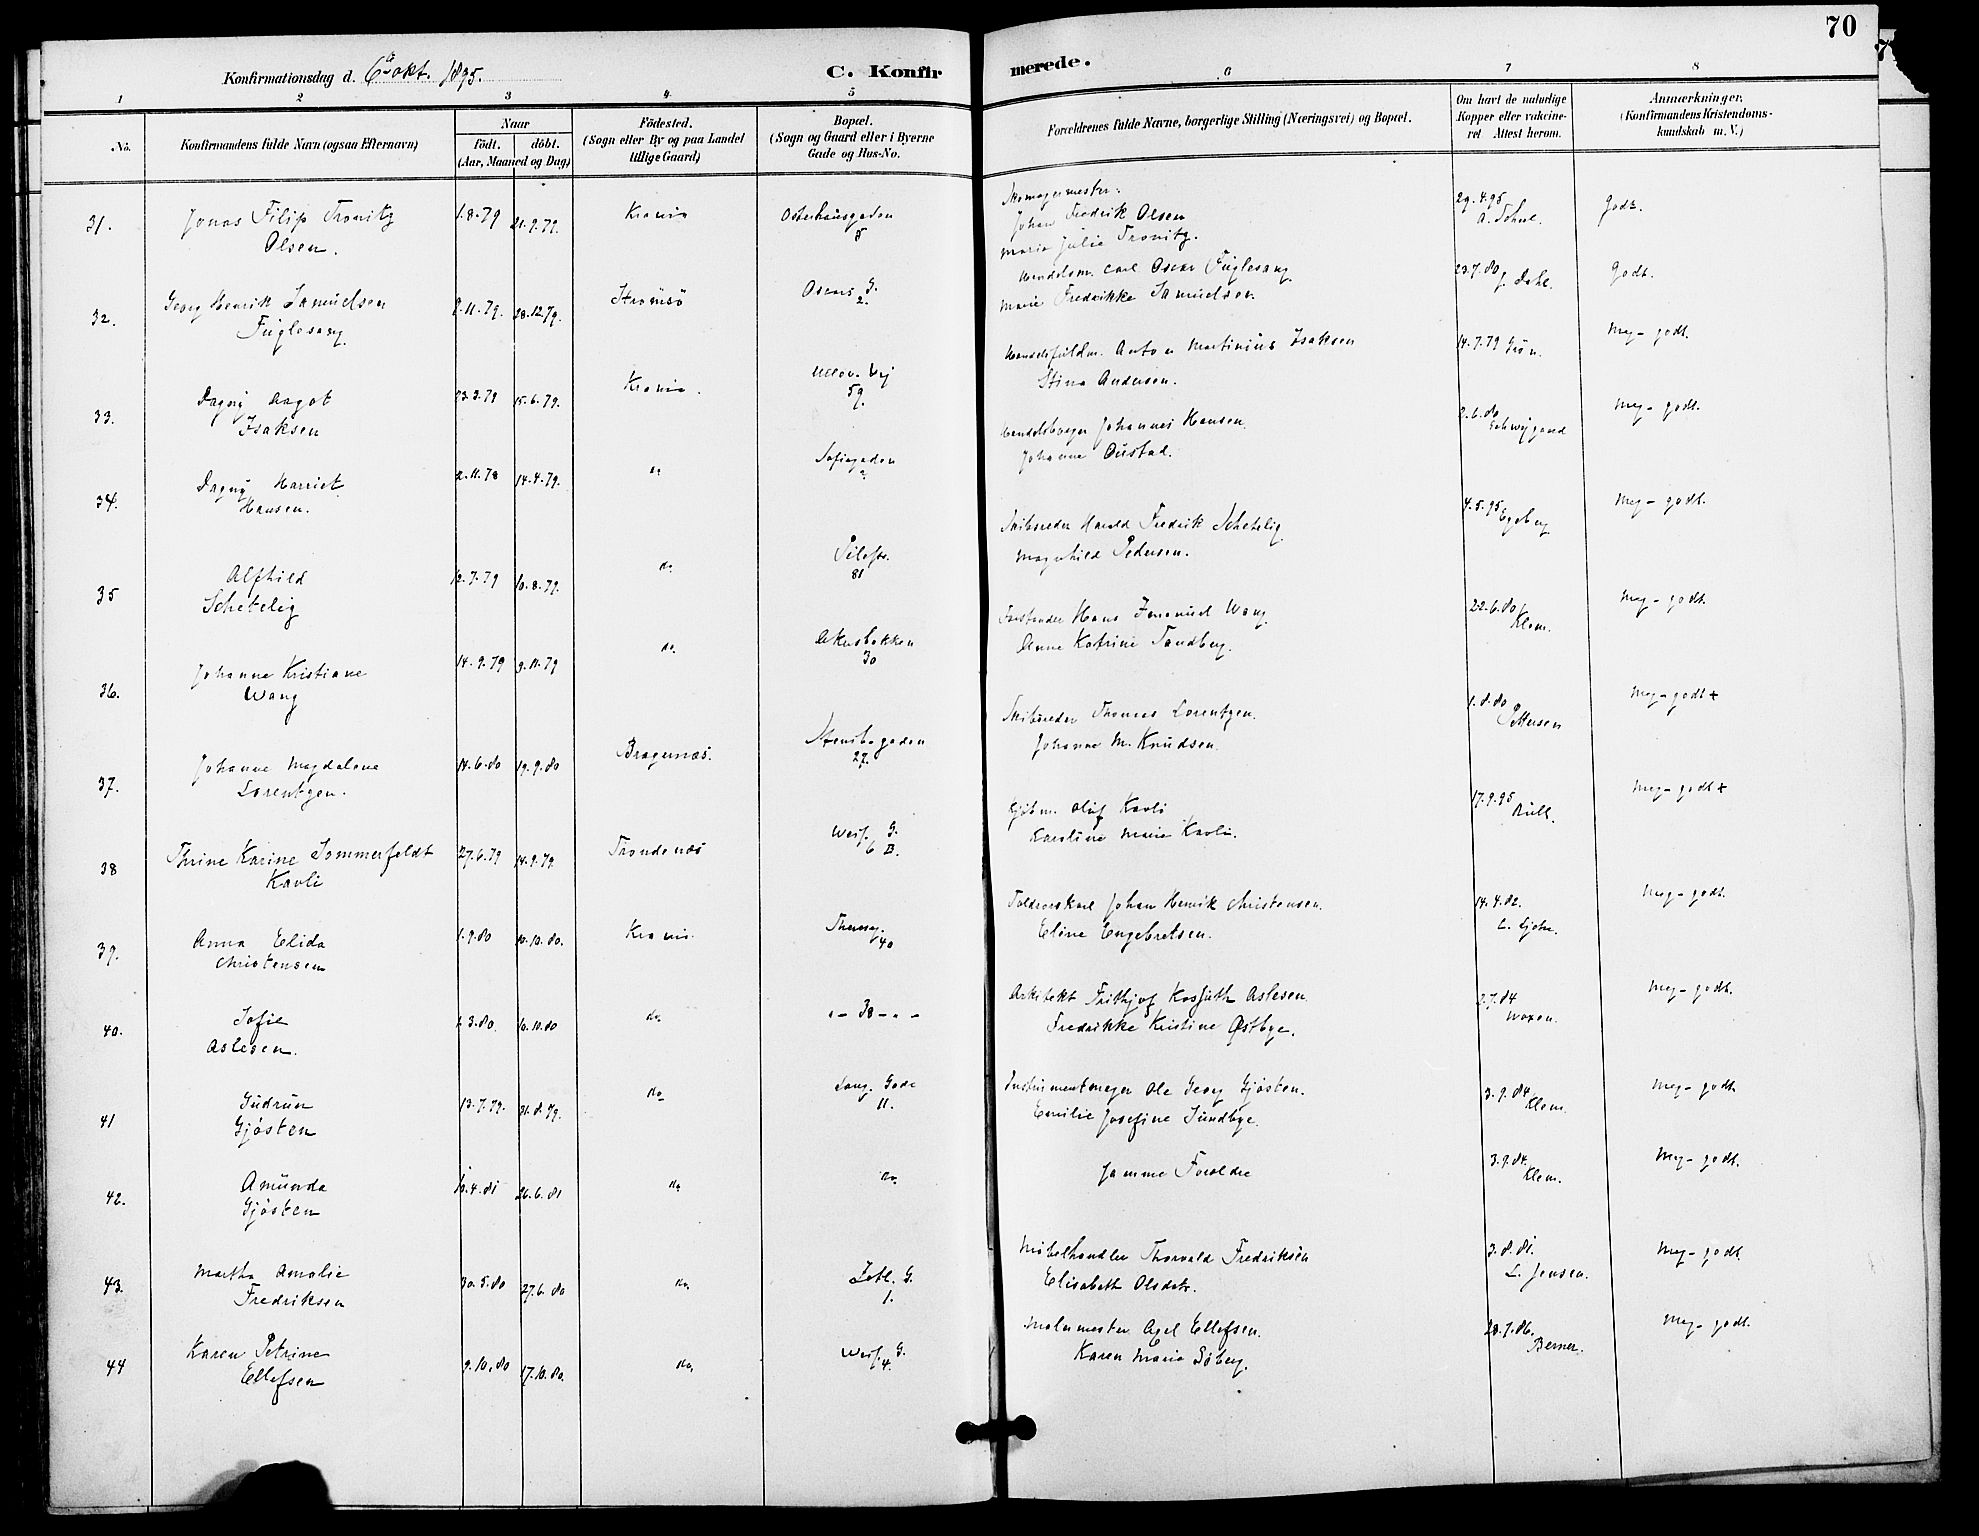 70
Konfirmationsdag d. 6te okt. 1895.
C. Konfirmerede.
1 2 3 4 5 6 7 8
No.
Konfirmandens fulde Navn (ogsaa Efternavn)
Naar
födt. döbt.
(Aar, Maaned og Dag)
Födested.
(Sogn eller By og paa Landet
tillige Gaard)
Bopæl.
(Sogn og Gaard eller i Byerne
Gade og Hus-No.
Forældrenes fulde Navne, borgerlige Stilling (Næringsvei) og Bopæl.
Om havt de naturlige
Kopper eller vakcine-
ret Attest herom.
Anmærkninger.
(Konfirmandens Kristendoms-
kundskab m. V.)
31. Jonas Filip Tronitz 1.8.79 21.9.79. Krania Osterhausgaden
Olsen. 5
Skomagermester.
Johan Fredrik Olsen
Marie Julie Tronitz.
29.4.95 godt.
32. Georg Henrik Samuelsen 9.11.79. 28.12.79. Strömsö Oscars G.
Fuglesang 2.
Handelsm. Carl Oscar Fuglesang
Marie Fredrikke Samuelsen
23.7.80 J. Dahl. Godt.
33. Dagny Dagot 15.6.79. Krania. Ullev. Vej
Isaksen 59.
Handelsfuldm. Anton Martinius Isaksen
Stina Andersen.
14.7.79 Meg- godt.
34. Dagny Harriet 2.11.78 14.4.79. do Sofiegaden
Hansen.
Johannes Hansen.
Johanne Oustad.
2.6.80 Schwejgaard Meg- godt.
35 Alfhild 12.7.79 10.8.79. do Pilestr.
Schetelig 81
Skibsreder Harald Fredrik Schetelig
Magnhild Pedersen.
4.5.95 Egeberg Meg- godt.
36. Johanne Kristiane 14.9.79 9.11.79 do. Akersbakken
Wang 30
Forstander Hans Immanuel Wang.
Anne Katrine Sandberg.
22.6.80 Klem. Meg- godt.
37. Johanne Magdalene 14.6.80 19.9.80 Bragernæs. Stensbgaden
Lorentzen. 27.
Skibsreder Thomas Lorentzen.
Johanne M. Knudsen.
1.8.80 Pettersen Meg- godt +
38 Thrine Karine Sommerfeldt 27.6.79 14.9.79. Trondenæs Weif. G.
Kavli 6 B.
Kjøbm. Oluf Kavli
Karoline Marie Kavli.
17.9.95 Meg- godt +
39. Anna Elida 1.9.80 10.10.80. Krania Thereseg.
Christensen 40
Toldrorskarl Johan Henrik Christensen.
Eline Engebretsen.
14.4.82. Meg- godt.
40. Sofie 2.3.80. 10.10.80 do - 38 - -
Aslesen.
Arkitekt Frithjof Kossuth Aslesen.
Fredrikke Kristine Østbye.
2.7.84 Meg- godt.
41 Gudrun 13.7.79. 31.8.79. do Lang. Gade
Gjøsten 11.
Instrumentmager Ole Georg Gjøsten.
Emilie Josefine Sundbye.
3.9.84 Klem. Meg- godt.
42. Amunda 10.4.81 26.6.81 do do.
Gjøsten
Samme Forældre
3.9.84. Klem. Meg- godt.
43. Martha Amalie 30.5.80 27.6.80 do. Zetl. G.
Fredriksen 1.
Møbelhandler Thorvald Fredriksen
Elisabeth Olsdtr.
3.8.81. L. Jensen. Meg- godt
44 Karen Petrine 9.10.80 17.10.80. do. Weif. G.
Ellefsen 4.
Malermester Axel Ellefsen.
Karen Marie Søberg.
28.7.86. Berner. Meg- godt.